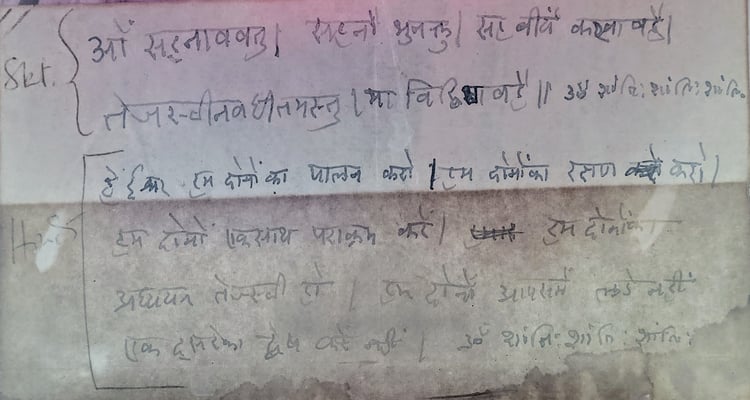 Skt.
ओं सहनाववतु। सहनौ भुनक्तु। सह वीर्यं करवावहै।
तेजस्वीनवधीतमस्तु। मा विद्विषावहै॥ ॐ शांतिः शांतिः शांतिः
हे ईश्वर हम दोनोंका पालन करो। हम दोनोंका रक्षण करो।
हम दोनों एकसाथ पराक्रम करें। हम दोनोंका
अध्ययन तेजस्वी हो। हम दोनों आपसमें लडे नहीं
एक दूसरेका द्वेष करें नहीं। ॐ शांतिः शांतिः शांतिः